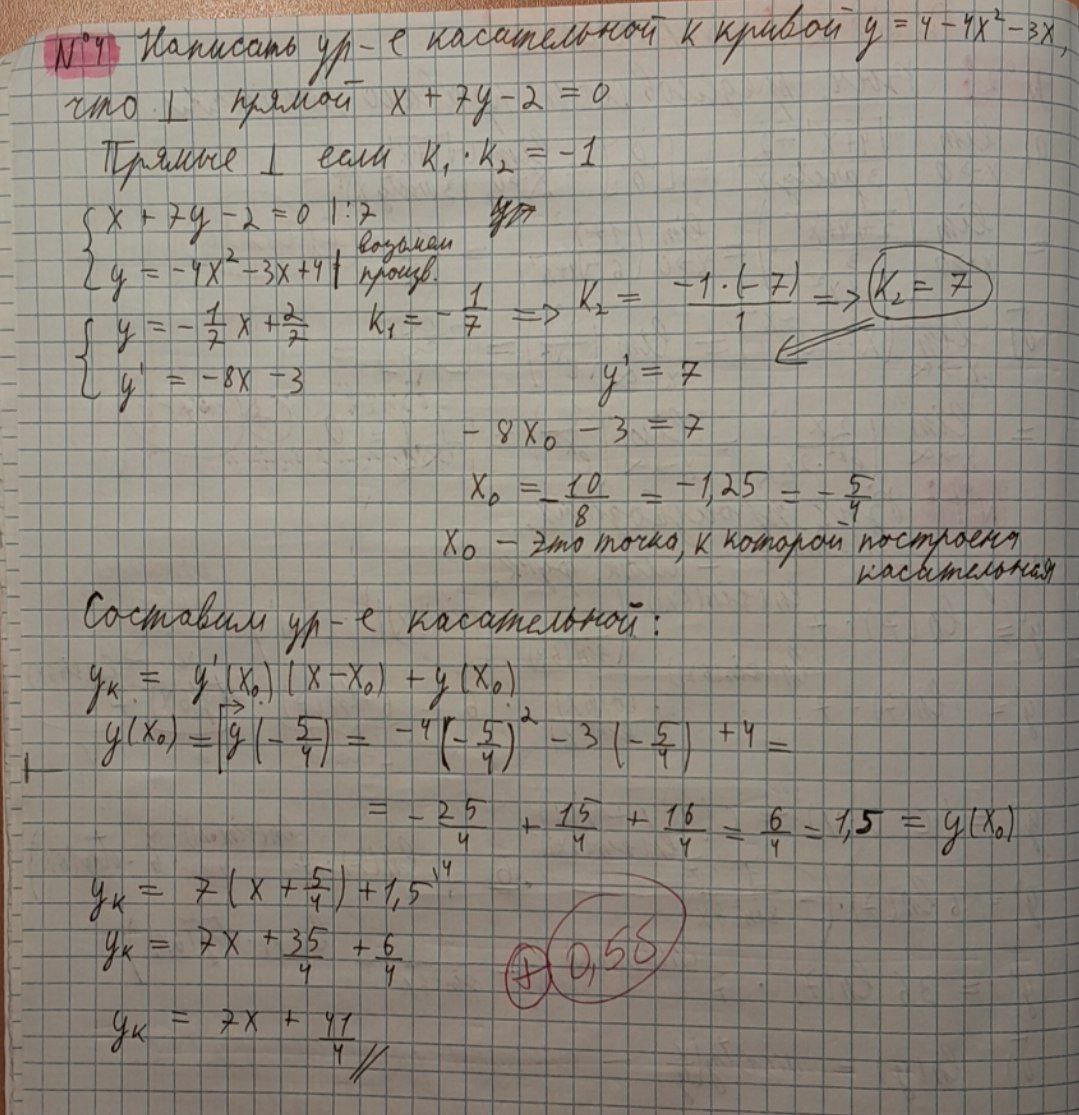 N°4 Написать ур-е касательной к кривой y = 4 - 4x² - 3x,
что ⊥ прямой x + 7y - 2 = 0
Прямые ⊥ если k₁ · k₂ = -1
{ x + 7y - 2 = 0 |:7
y = -4x² - 3x + 4 | возьмем произв.
{ y = -1/7 x + 2/7 k₁ = -1/7 => k₂ = -1·(-7)/1 => k₂ = 7
y' = -8x - 3 y' = 7
-8x₀ - 3 = 7
x₀ = -10/8 = -1,25 = -5/4
x₀ - это точка, к которой построена
касательная
Составим ур-е касательной:
yк = y'(x₀)(x - x₀) + y(x₀)
y(x₀) = y(-5/4) = -4(-5/4)² - 3(-5/4) + 4 =
= -25/4 + 15/4 + 16/4 = 6/4 = 1,5 = y(x₀)
yк = 7(x + 5/4) + 1,5
yк = 7x + 35/4 + 6/4
+ 0,5б
yк = 7x + 41/4